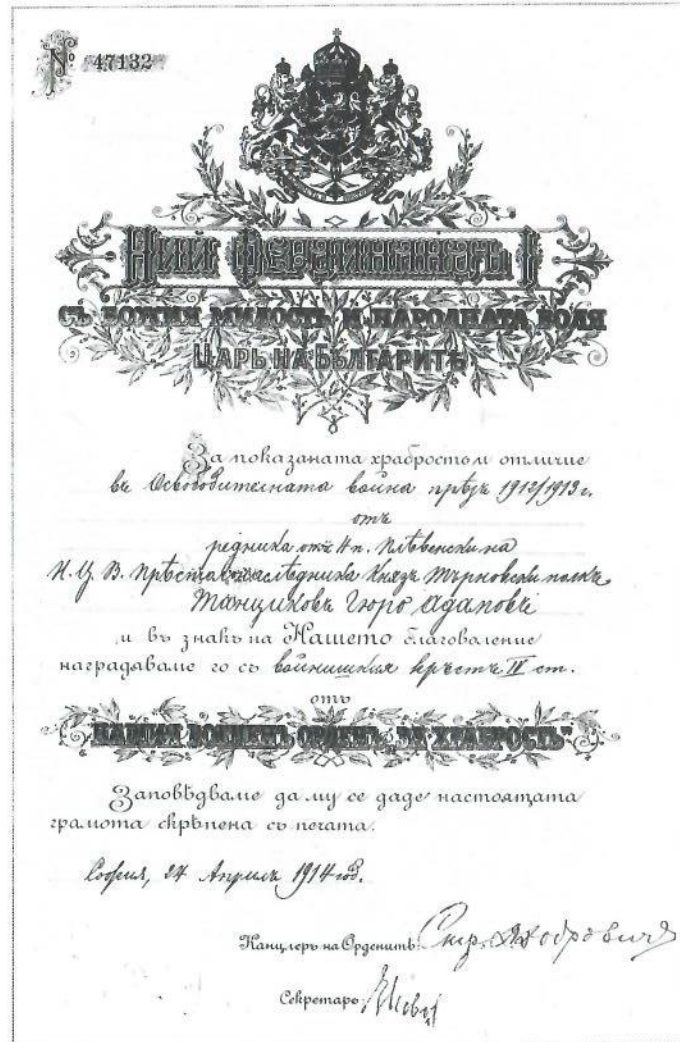 № 47132
НИЙ ФЕРДИНАНДЪ I
СЪ БОЖИЯ МИЛОСТЬ И НАРОДНАТА ВОЛЯ
ЦАРЬ НА БЪЛГАРИТѢ
За показаната храбростъ и отличие
въ Освободителната война прѣзъ 1912/1913 г.
отъ
редника отъ 4 п. Плѣвенски на
Н. Ц. В. Прѣстолонаслѣдника Князъ Търновски полкъ
Танциковъ Гюро Адамовъ
и въ знакъ на Нашето благоволение
наградяваме го съ войнишкия кръстъ IV ст.
отъ
НАШИЯ ВОЕНЕНЪ ОРДЕНЪ „ЗА ХРАБРОСТЬ"
Заповѣдваме да му се даде настоящата
грамота скрѣпена съ печата.
София, 24 Априлъ 1914 год.
Канцлеръ на Орденитѣ: Добровичъ
Секретаръ: